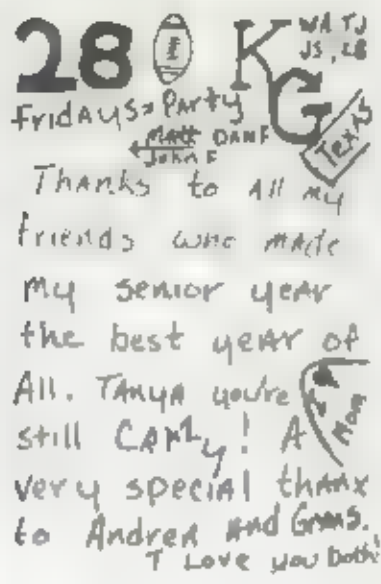 28 KG WA TJ
JS, LB
Fridays = Party
Matt DANF
John F
Texas
Thanks to All my
friends who made
my senior year
the best year of
All. TANYA you're
still CRAZY! A
Mom
very special thanx
to Andrea and Gms.
I Love you both!